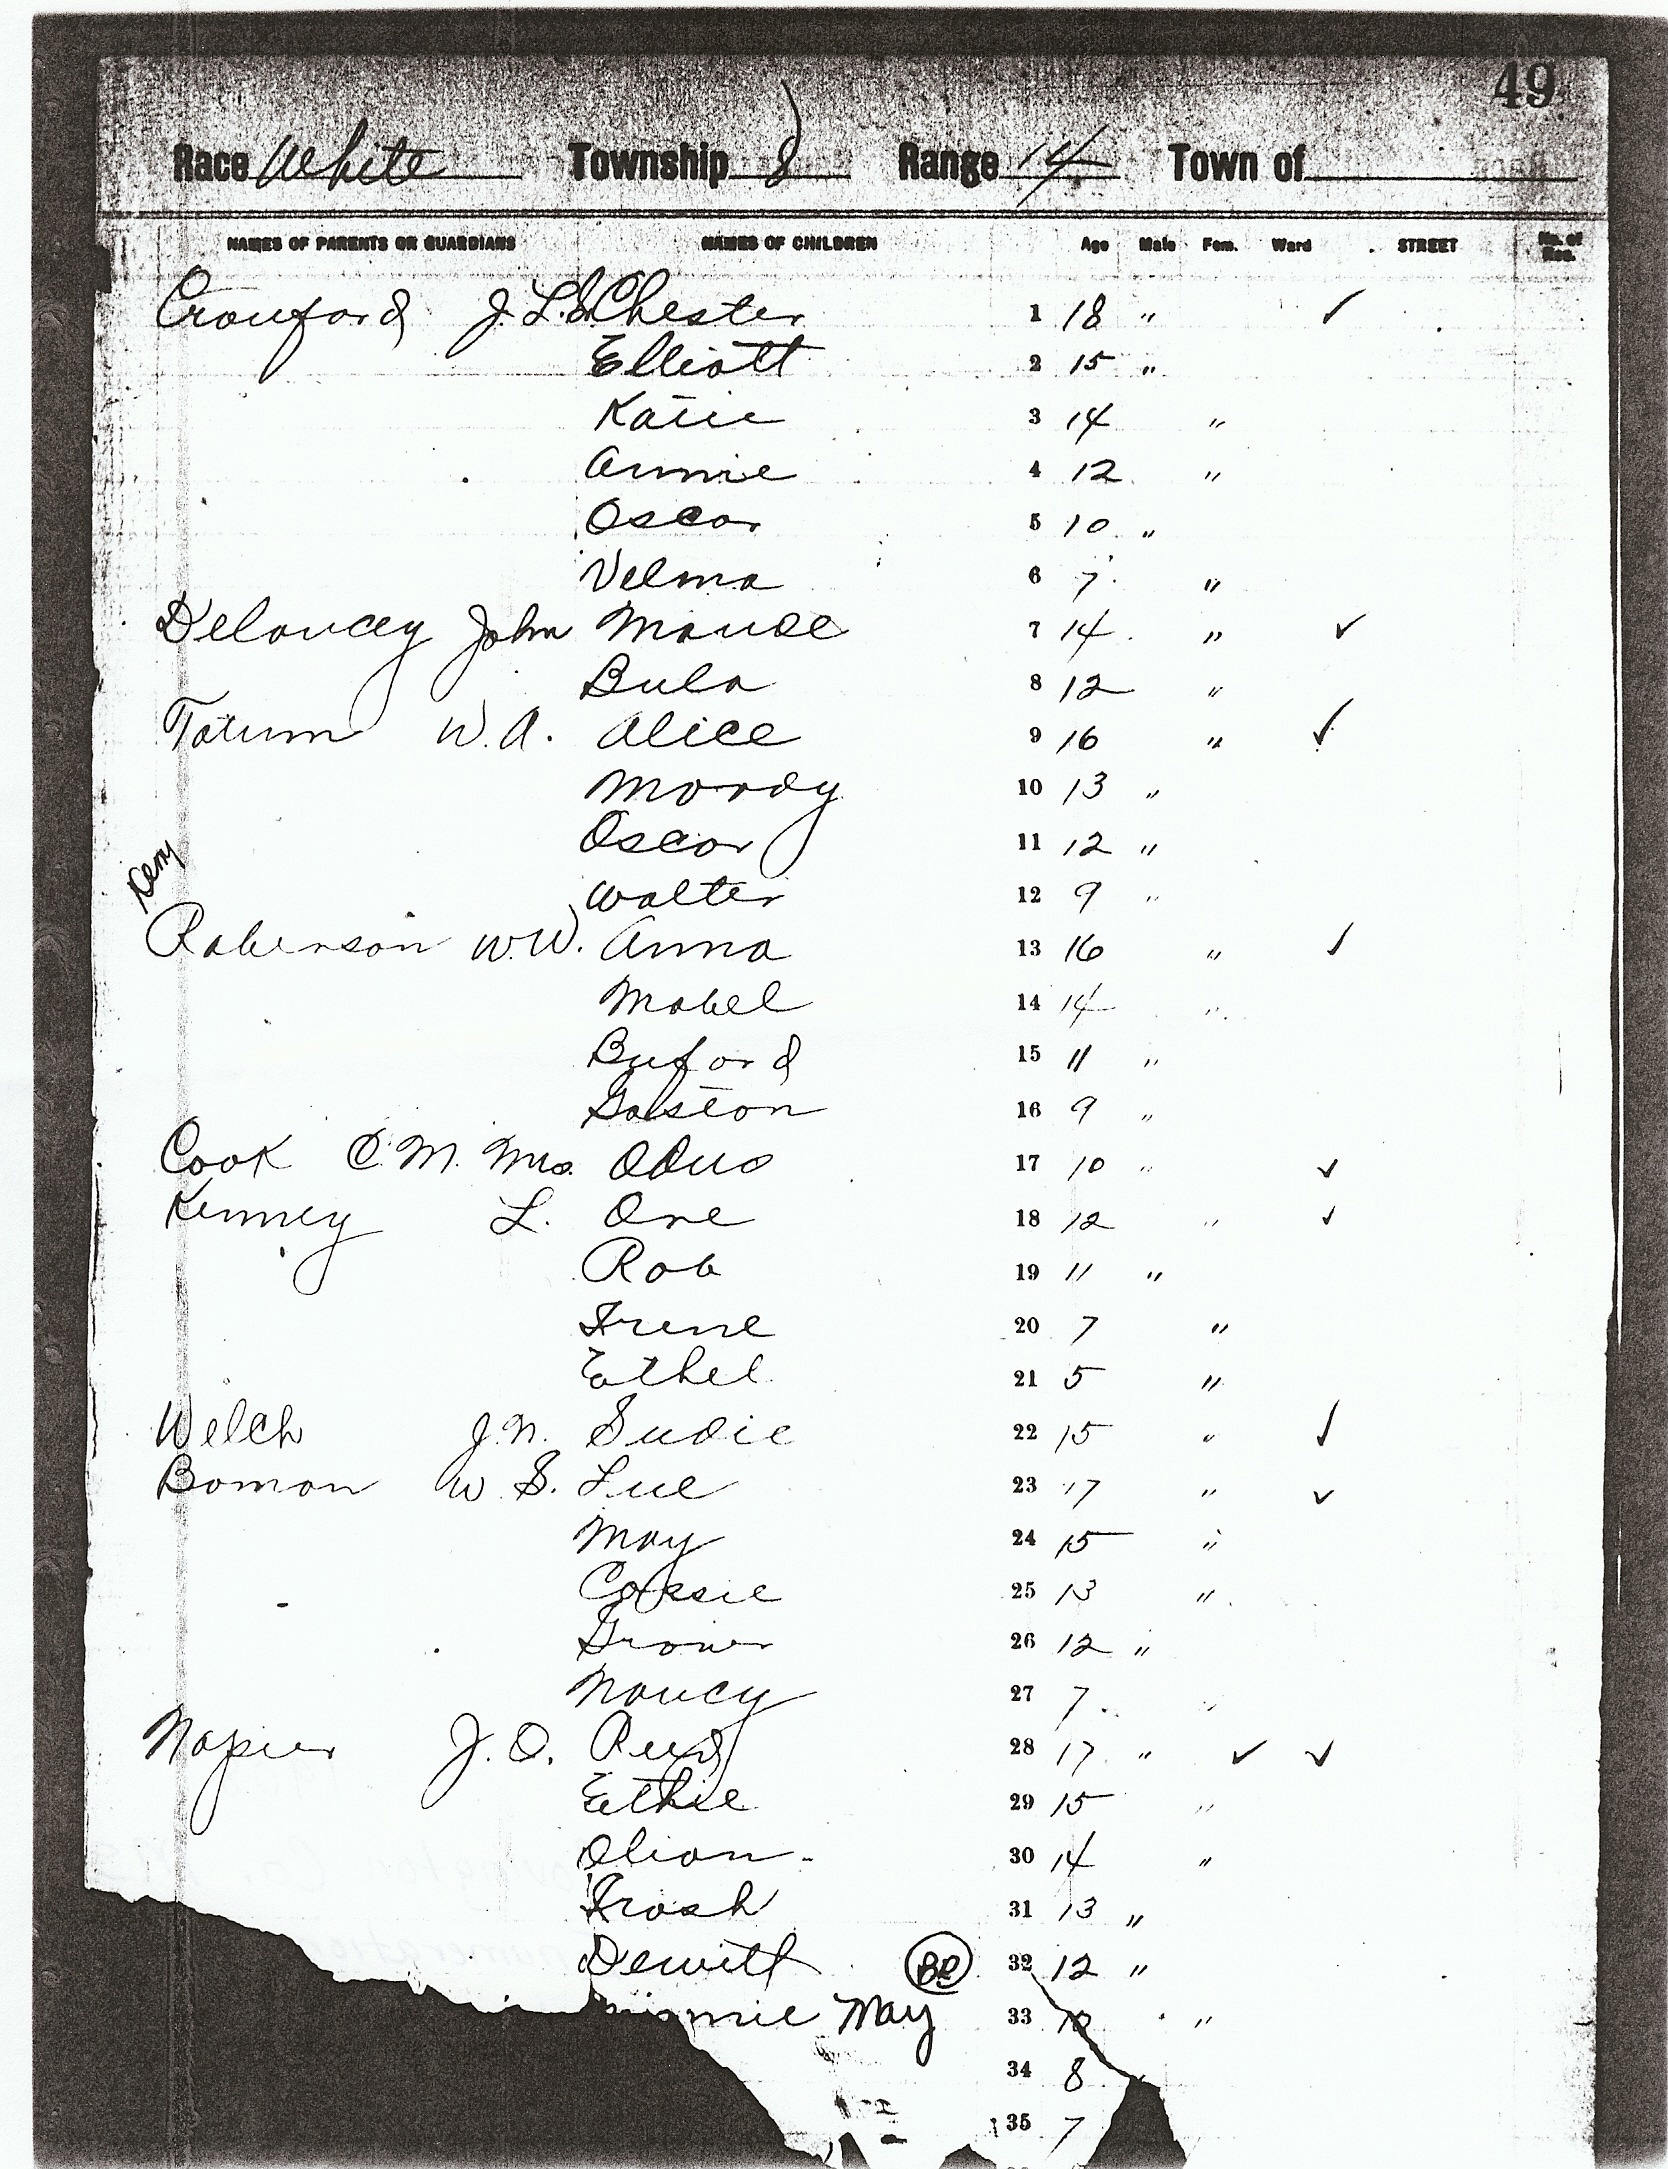 49
Race White Township 8 Range 14 Town of
NAMES OF PARENTS OR GUARDIANS NAMES OF CHILDREN Age Male Fem. Ward STREET No. of Res.
Crawford J. L. S. Chester 1 18 " ✓
Elliott 2 15 "
Katie 3 14 "
Annie 4 12 "
Oscar 5 10 "
Velma 6 7 "
Delancey John Maude 7 14 " ✓
Bula 8 12 "
Tatum W. A. Alice 9 16 " ✓
Moody 10 13 "
Oscar 11 12 "
Walter 12 9 "
Roberson W. W. Anna 13 16 " ✓
Mabel 14 14 "
Buford 15 11 "
Galston 16 9 "
Cook C. M. Mrs. Odus 17 10 " ✓
Kenney L. One 18 12 " ✓
Rob 19 11 "
Irene 20 7 "
Ethel 21 5 "
Welch J. N. Sudie 22 15 " ✓
Boman W. S. Lue 23 17 " ✓
May 24 15 "
Cassie 25 13 "
Grover 26 12 "
Nancy 27 7 "
Napier J. O. 28 17 " ✓ ✓
Ethie 29 15 "
Olian 30 14 "
31 13 "
Dewitt BR 32 12 "
May 33 10 "
34 8
35 7